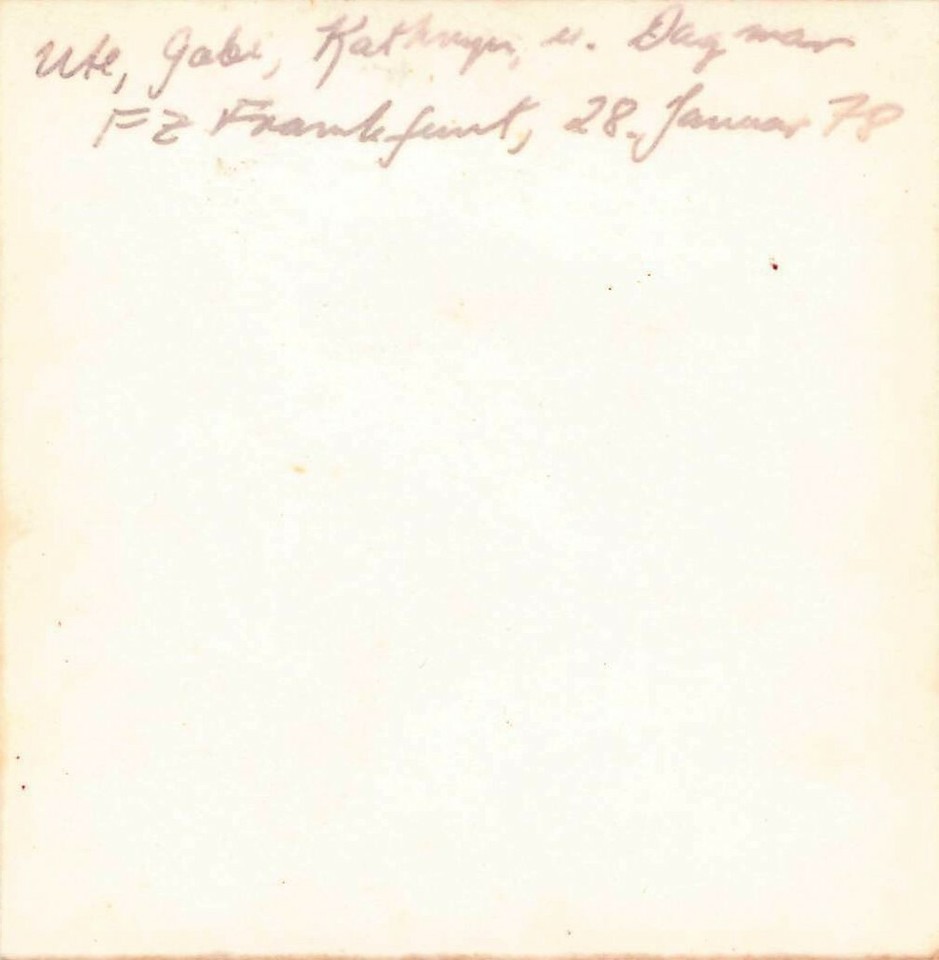 Ute, Gabi, Kathryn, u. Dagmar
FZ Frankfurt, 28. Januar 78